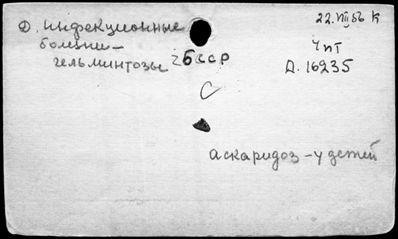 Д. инфекционные
болезни –
гельминтозы 2 БССР
22.VIII 56 К
Чит
Д. 16235
С
аскаридоз – у детей